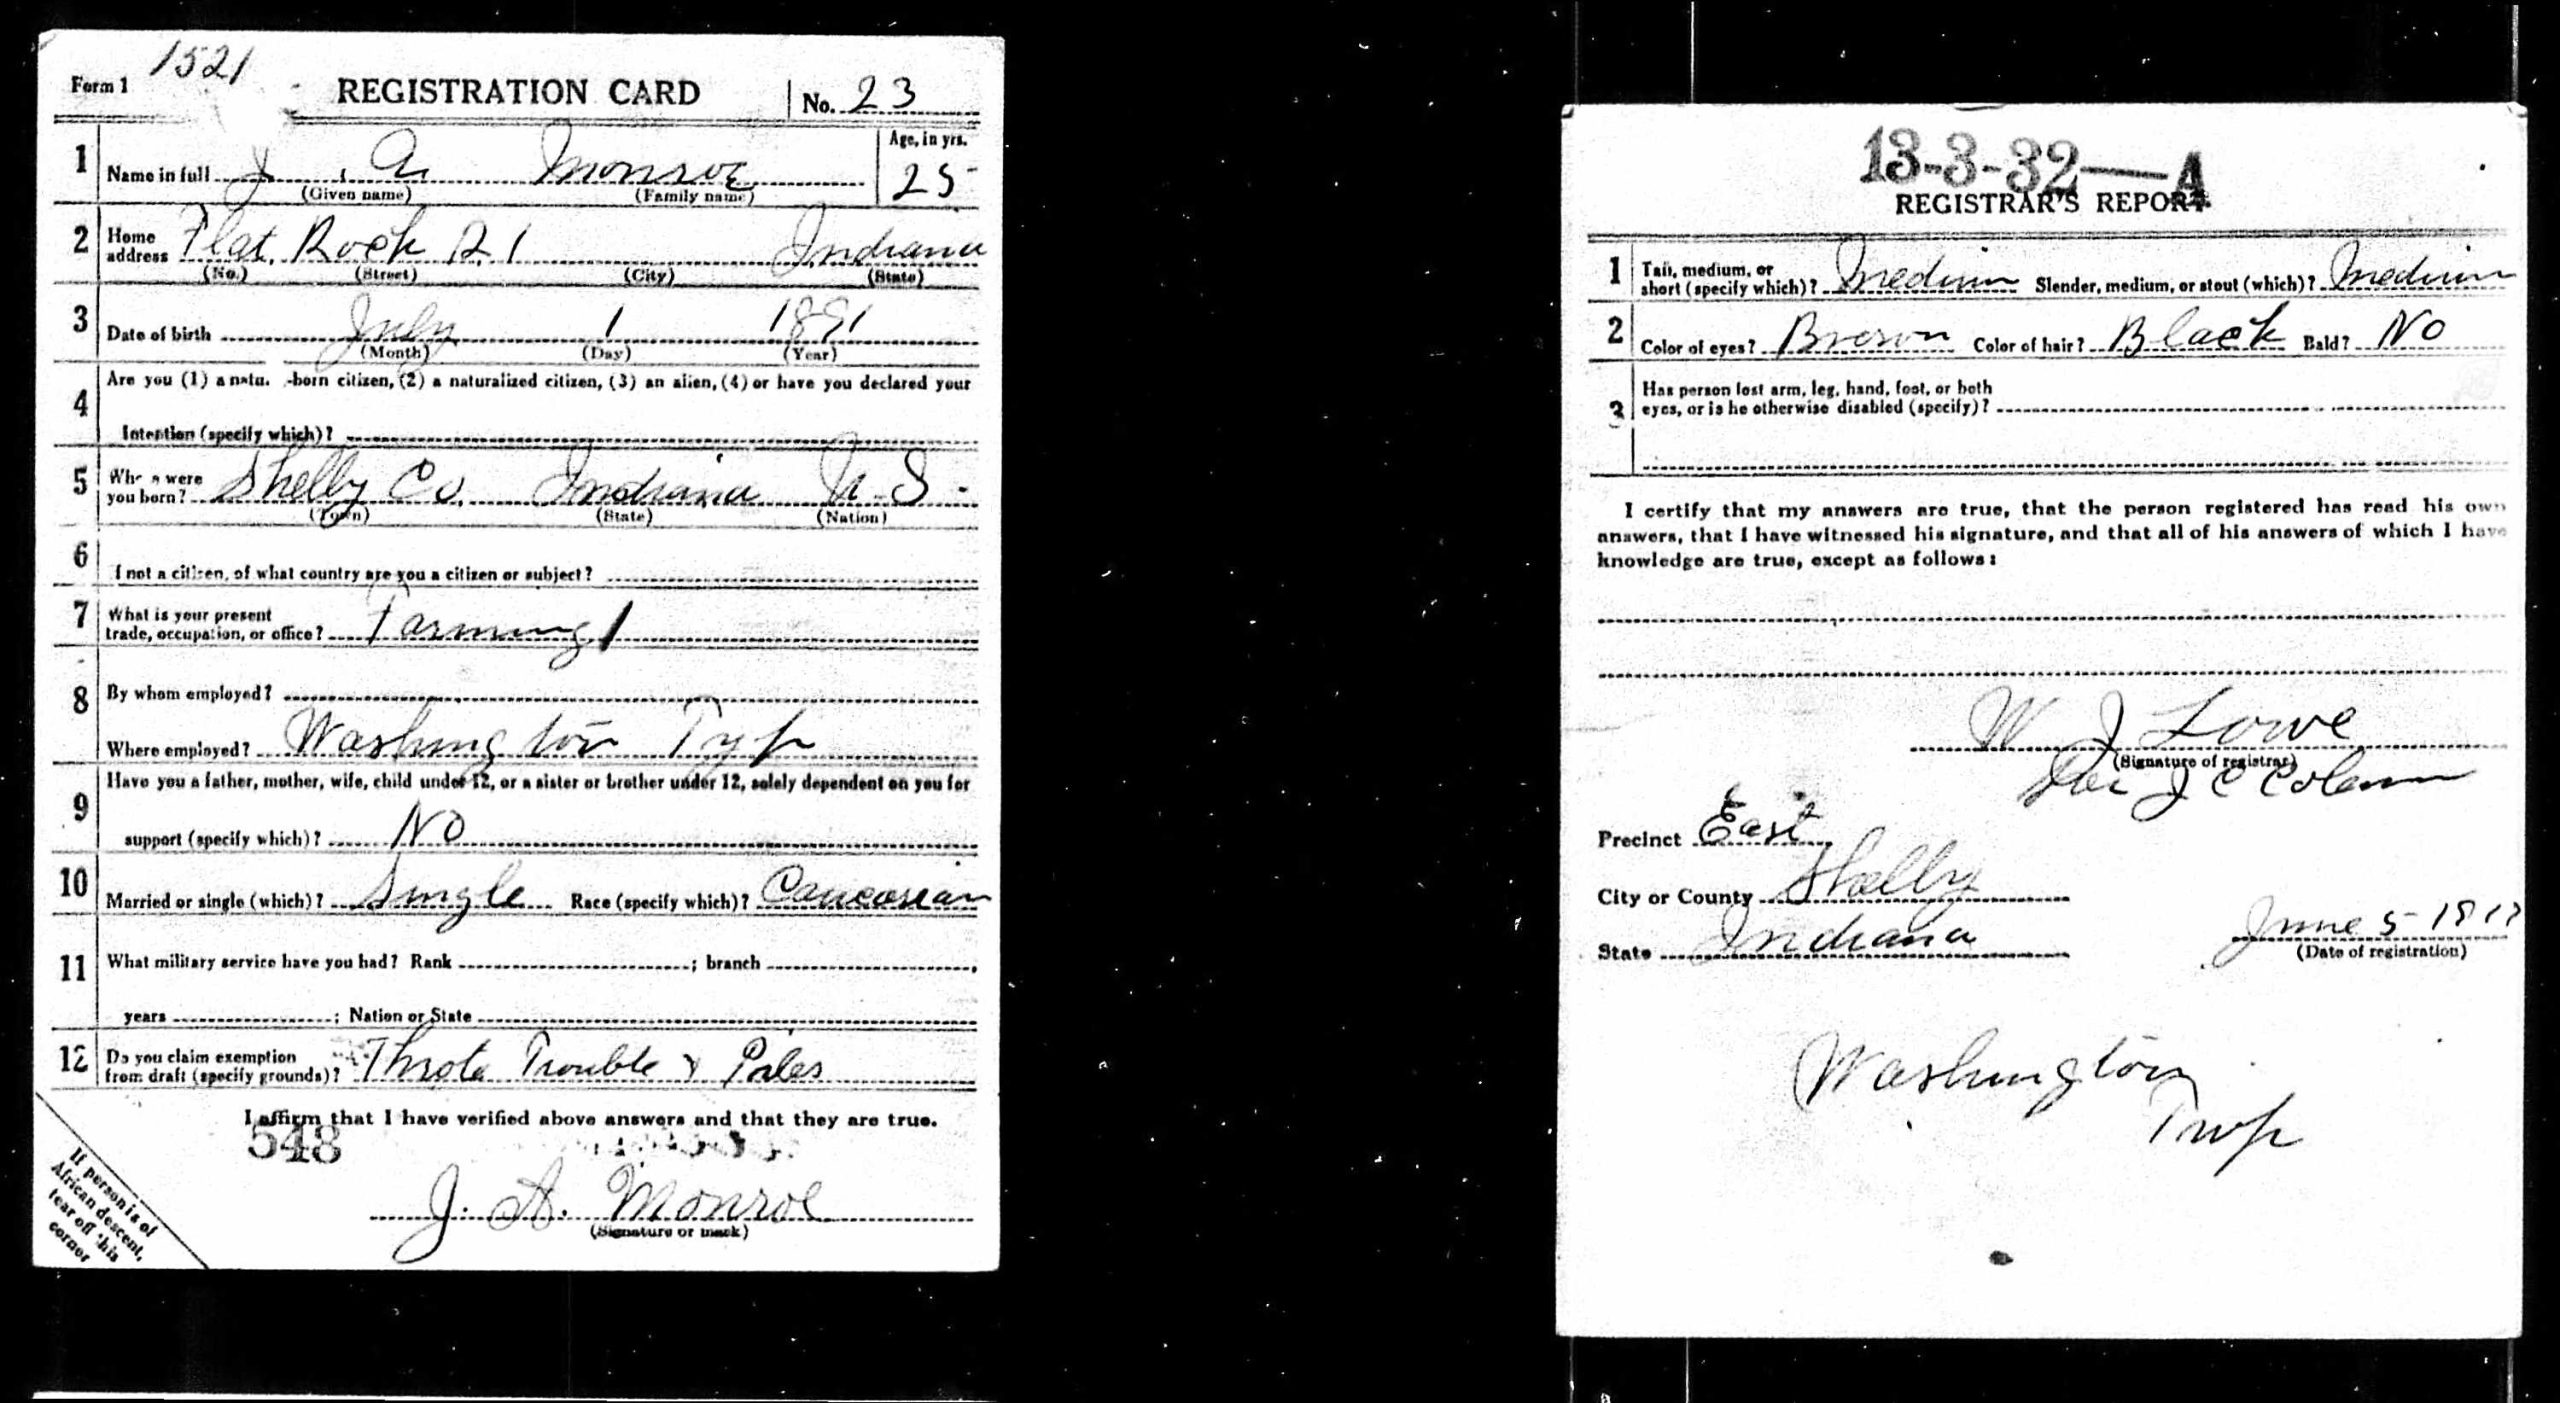 1521
Form 1 REGISTRATION CARD No. 23
1 Name in full J. A. Monroe Age, in yrs. 25
(Given name) (Family name)
2 Home address Flat Rock R 1 Indiana
(No.) (Street) (City) (State)
3 Date of birth July 1 1891
(Month) (Day) (Year)
4 Are you (1) a natu. -born citizen, (2) a naturalized citizen, (3) an alien, (4) or have you declared your
Intention (specify which)?
5 were you born? Shelby Co. Indiana U.S.
(Town) (State) (Nation)
6 I not a citizen, of what country are you a citizen or subject?
7 What is your present trade, occupation, or office? Farming 1
8 By whom employed?
Where employed? Washington Typ
9 Have you a father, mother, wife, child under 12, or a sister or brother under 12, solely dependent on you for
support (specify which)? No
10 Married or single (which)? Single Race (specify which)? Caucasian
11 What military service have you had? Rank ; branch
years ; Nation or State
12 Do you claim exemption from draft (specify grounds)? Throte Trouble & Piles
I affirm that I have verified above answers and that they are true.
548
J. A. Monroe
(Signature or mark)
If person is of
African descent,
tear off this
corner
13-3-32—A
REGISTRAR'S REPORT
1 Tall, medium, or short (specify which)? Medium Slender, medium, or stout (which)? Medium
2 Color of eyes? Brown Color of hair? Black Bald? No
3 Has person lost arm, leg, hand, foot, or both
eyes, or is he otherwise disabled (specify)?
I certify that my answers are true, that the person registered has read his own
answers, that I have witnessed his signature, and that all of his answers of which I have
knowledge are true, except as follows:
W J Lowe
(Signature of registrar)
J C
Precinct East
City or County Shelby
State Indiana June 5 1917
(Date of registration)
Washington
Twp